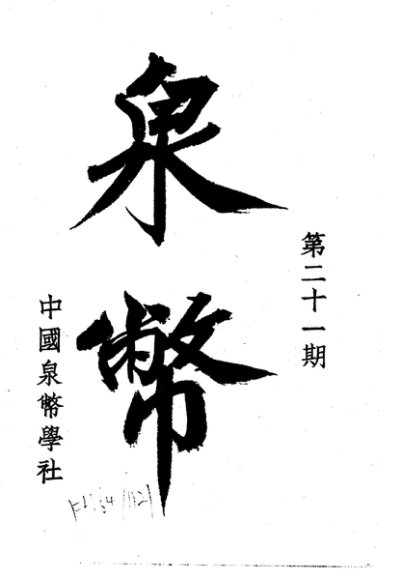 第二十一期
泉幣
中國泉幣學社